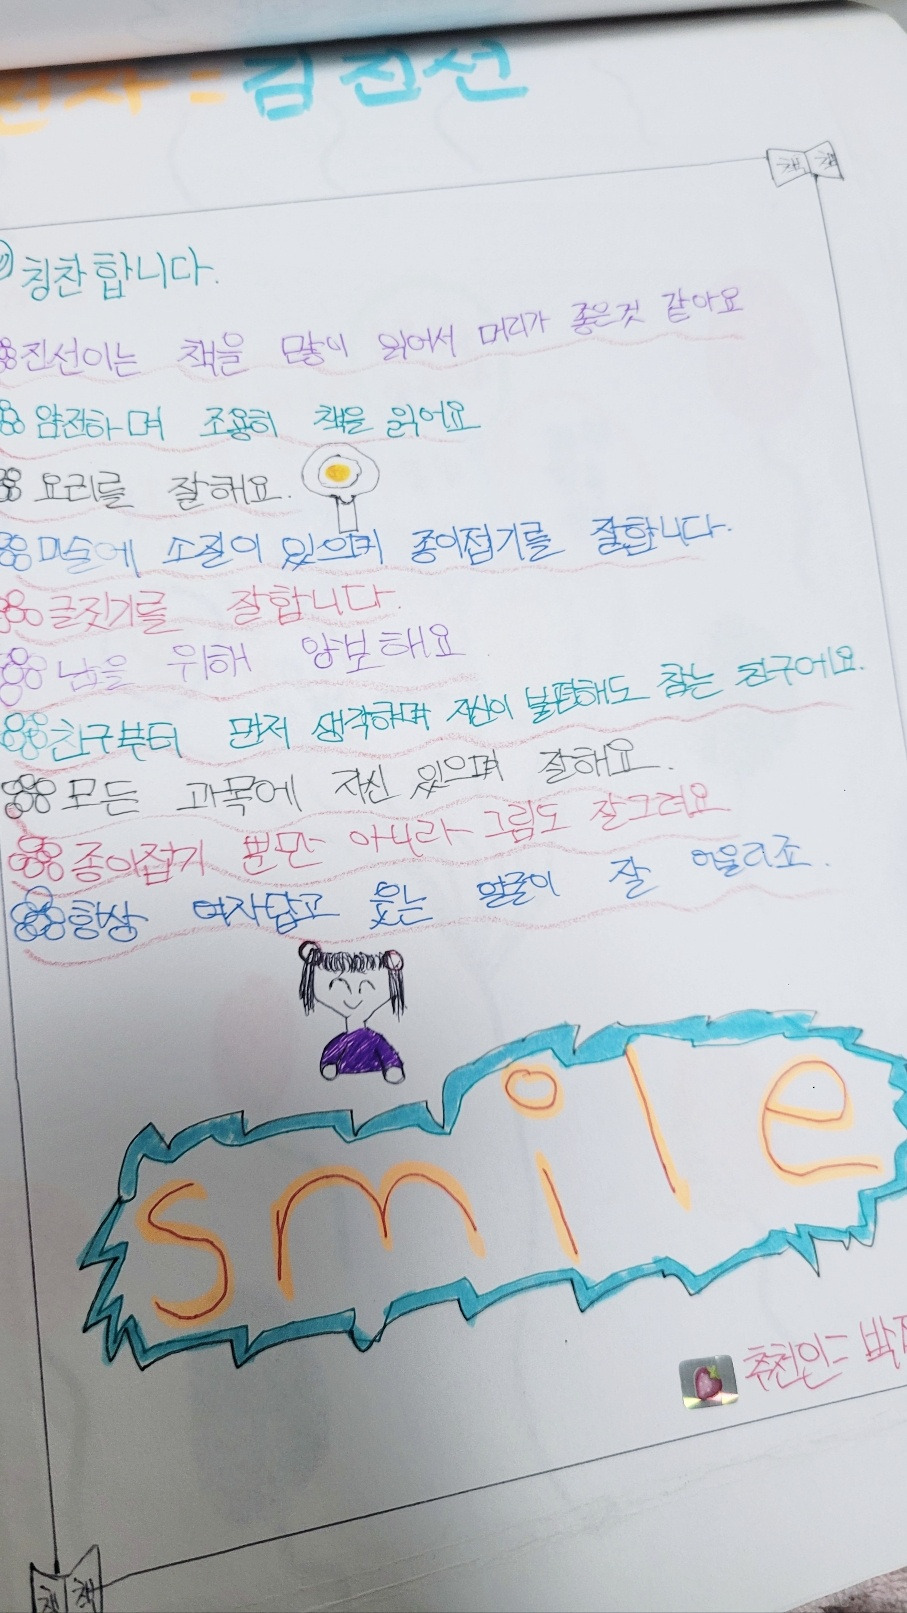 천자= 김진선
책 책
칭찬합니다.
진선이는 책을 많이 읽어서 머리가 좋은것 같아요
얌전하며 조용히 책을 읽어요
요리를 잘해요.
미술에 소질이 있으며 종이접기를 잘합니다.
글짓기를 잘합니다.
남을 위해 양보해요
친구부터 먼저 생각하며 자신이 불편해도 참는 친구에요.
모든 과목에 자신 있으며 잘해요.
종이접기 뿐만 아니라 그림도 잘그려요
항상 여자답고 웃는 얼굴이 잘 어울리죠.
smile
추천인= 박
책 책